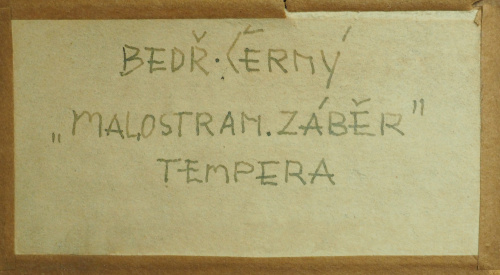 BEDŘ. ČERNÝ
„MALOSTRAN. ZÁBĚR"
TEMPERA